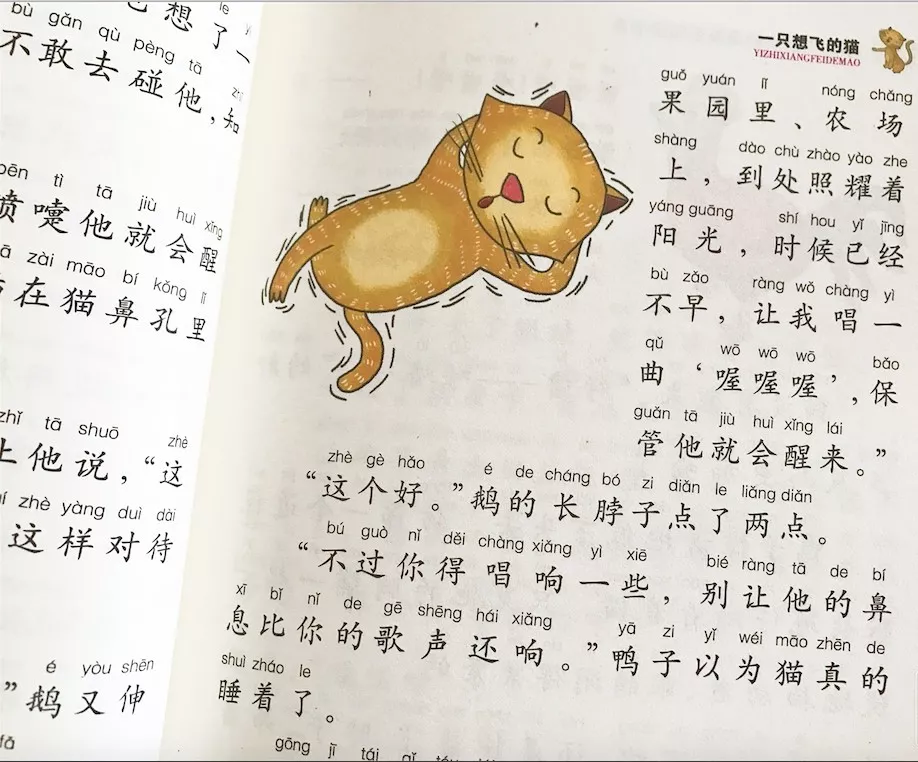 le
想了一
bù gǎn qù pèng tā
不敢去碰他，知
pēn tì tā jiù huì xǐng
喷嚏他就会醒
zài māo bí kǒng lǐ
在猫鼻孔里
tā shuō zhè
上他说，“这
zhè yàng duì dài
这样对待
é yòu shēn
”鹅又伸
一只想飞的猫
YIZHIXIANGFEIDEMAO
guǒ yuán lǐ nóng chǎng
果园里、农场
shàng dào chù zhào yào zhe
上，到处照耀着
yáng guāng shí hou yǐ jīng
阳光，时候已经
bù zǎo ràng wǒ chàng yì
不早，让我唱一
qǔ wō wō wō bǎo
曲‘喔喔喔’，保
guǎn tā jiù huì xǐng lái
管他就会醒来。”
zhè gè hǎo é de cháng bó zi diǎn le liǎng diǎn
“这个好。”鹅的长脖子点了两点。
bú guò nǐ děi chàng xiǎng yì xiē bié ràng tā de bí
“不过你得唱响一些，别让他的鼻
xī bǐ nǐ de gē shēng hái xiǎng yā zi yǐ wéi māo zhēn de
息比你的歌声还响。”鸭子以为猫真的
shuì zháo le
睡着了。
gōng jī tái